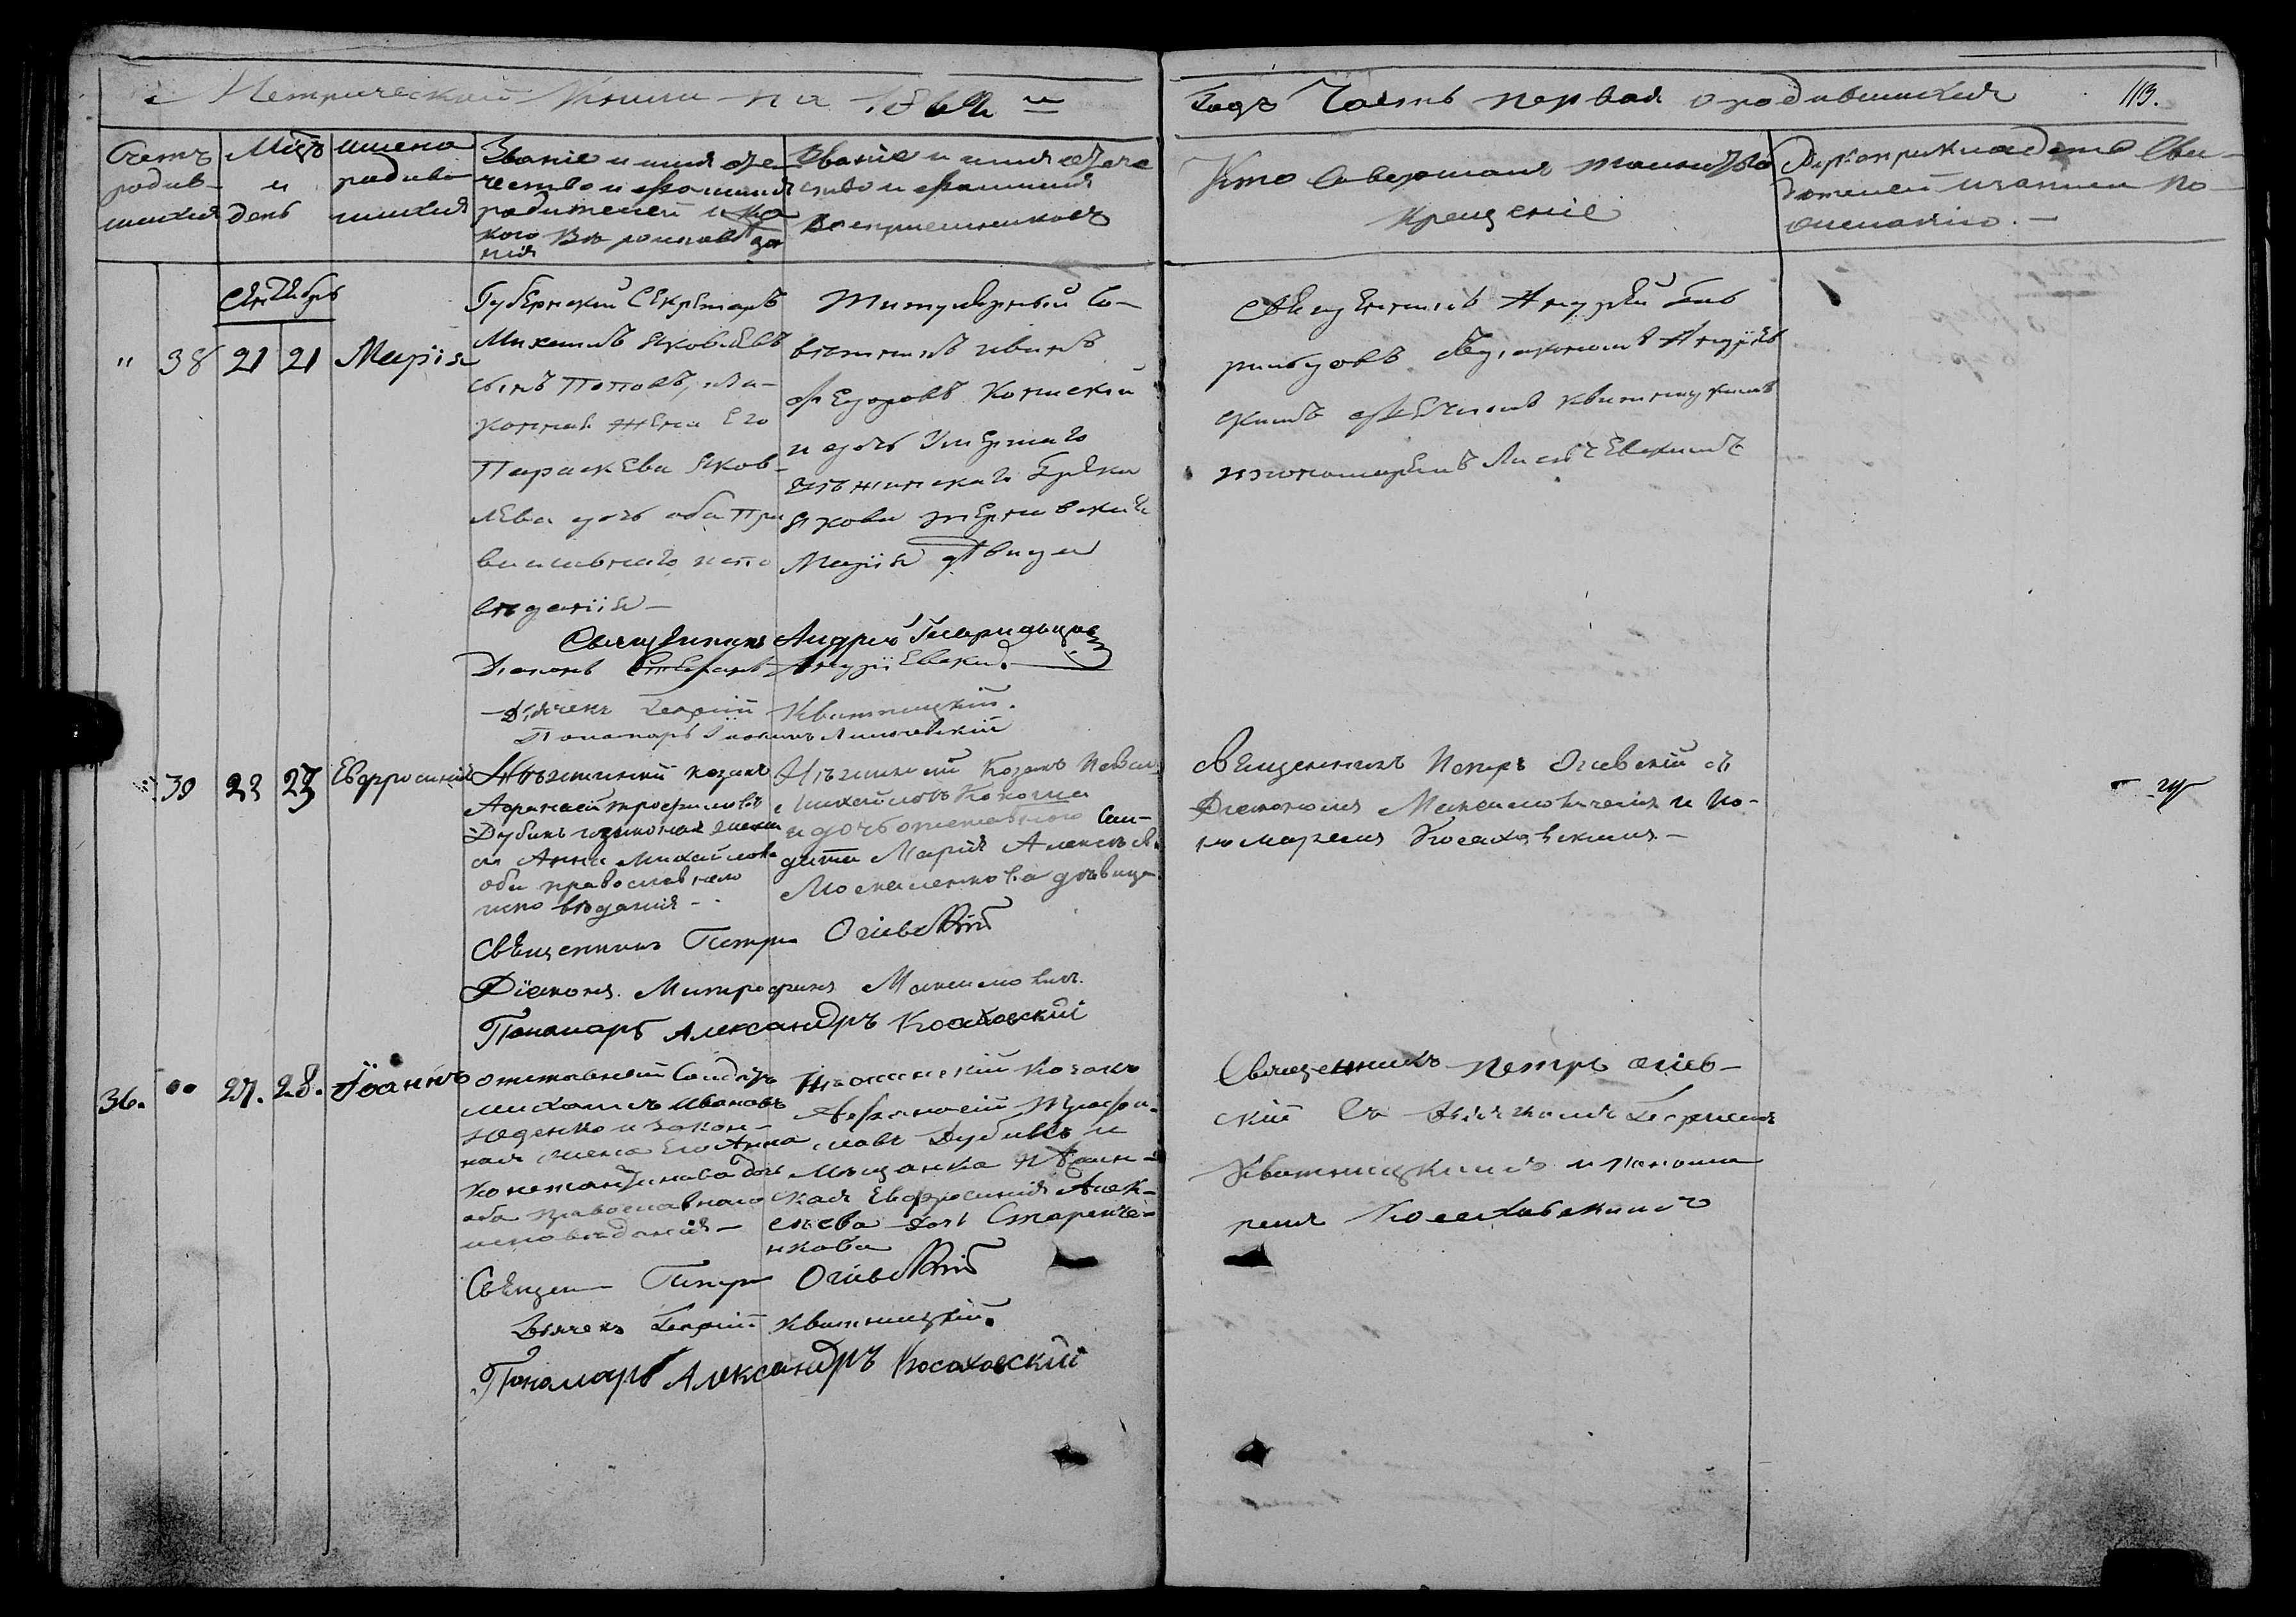 Метрической книги на 1862 й
Годъ Часть первая о родившихся 113.
Счетъ родив- шихся
Мѣсяцъ и день
имена родив- шихся
Званіе и имя оте-
чество и фамилія
родителей и ка-
кого вѣроисповѣда
нія
Званіе и имя отече
ство и фамилія
Воспріемниковъ
Кто совершалъ таинство
крещенія
Рукоприкладство сви-
дѣтелей записи по
желанію. —
Сентябрь
" 38 21 21 Марія
Губернскій Секретарь
Михаилъ Яковлевъ
сынъ Поповъ, и за-
конная жена Его
Параскева Яков-
лева дочь оба Пра
вославнаго испо
вѣданія —
Титулярный Со-
вѣтникъ Иванъ
Федоровъ
и дочь Умершаго
Нѣжинскаго Грека
Якова
Марія дѣвица
Священникъ Андрей Гав
риловъ Діакономъ Андріев
скимъ Дьячкомъ Квитницкимъ
и пономаремъ
Священникъ Андрей
Діаконъ Стефанъ Андріевскій.
Дьячекъ Георгій Квитницкій.
Пономарь
" 39 23 23 Евфросинія
Нѣжинскій козакъ
Афанасій Трофимовъ
Дубикъ и законная жена
его Анна Михайлова
оба православнаго
исповѣданія —
Нѣжинскій Козакъ
Михайловъ Кокоша
и дочь отставнаго Сол-
дата Марія Алексѣева
Москаленкова дѣвица
Священникъ Петръ Огіевскій съ
Діакономъ Максимовичемъ и по-
номаремъ Косаховскимъ —
Священникъ Петръ Огіевскій
Діаконъ Митрофанъ Максимовичъ.
Пономарь Александръ Косаховскій
36. " 27. 28. Іоаннъ
отставной Солдатъ
Михаилъ Ивановъ
и закон-
ная жена Его Анна
Константинова дочь
оба православнаго
исповѣданія —
Нѣжинскій Козакъ
Афанасій Трофи-
мовъ Дубикъ и
Мѣщанка Нѣжин-
ская Евфросинія Алек-
сѣева дочь Старенче-
нкова
Священникъ Петръ Огіев-
скій съ Дьячкомъ Георгіемъ
Квитницкимъ и понома
ремъ Косаховскимъ
Священ Петръ Огіевскій
Дьячекъ Георгій Квитницкій.
Пономарь Александръ Косаховскій